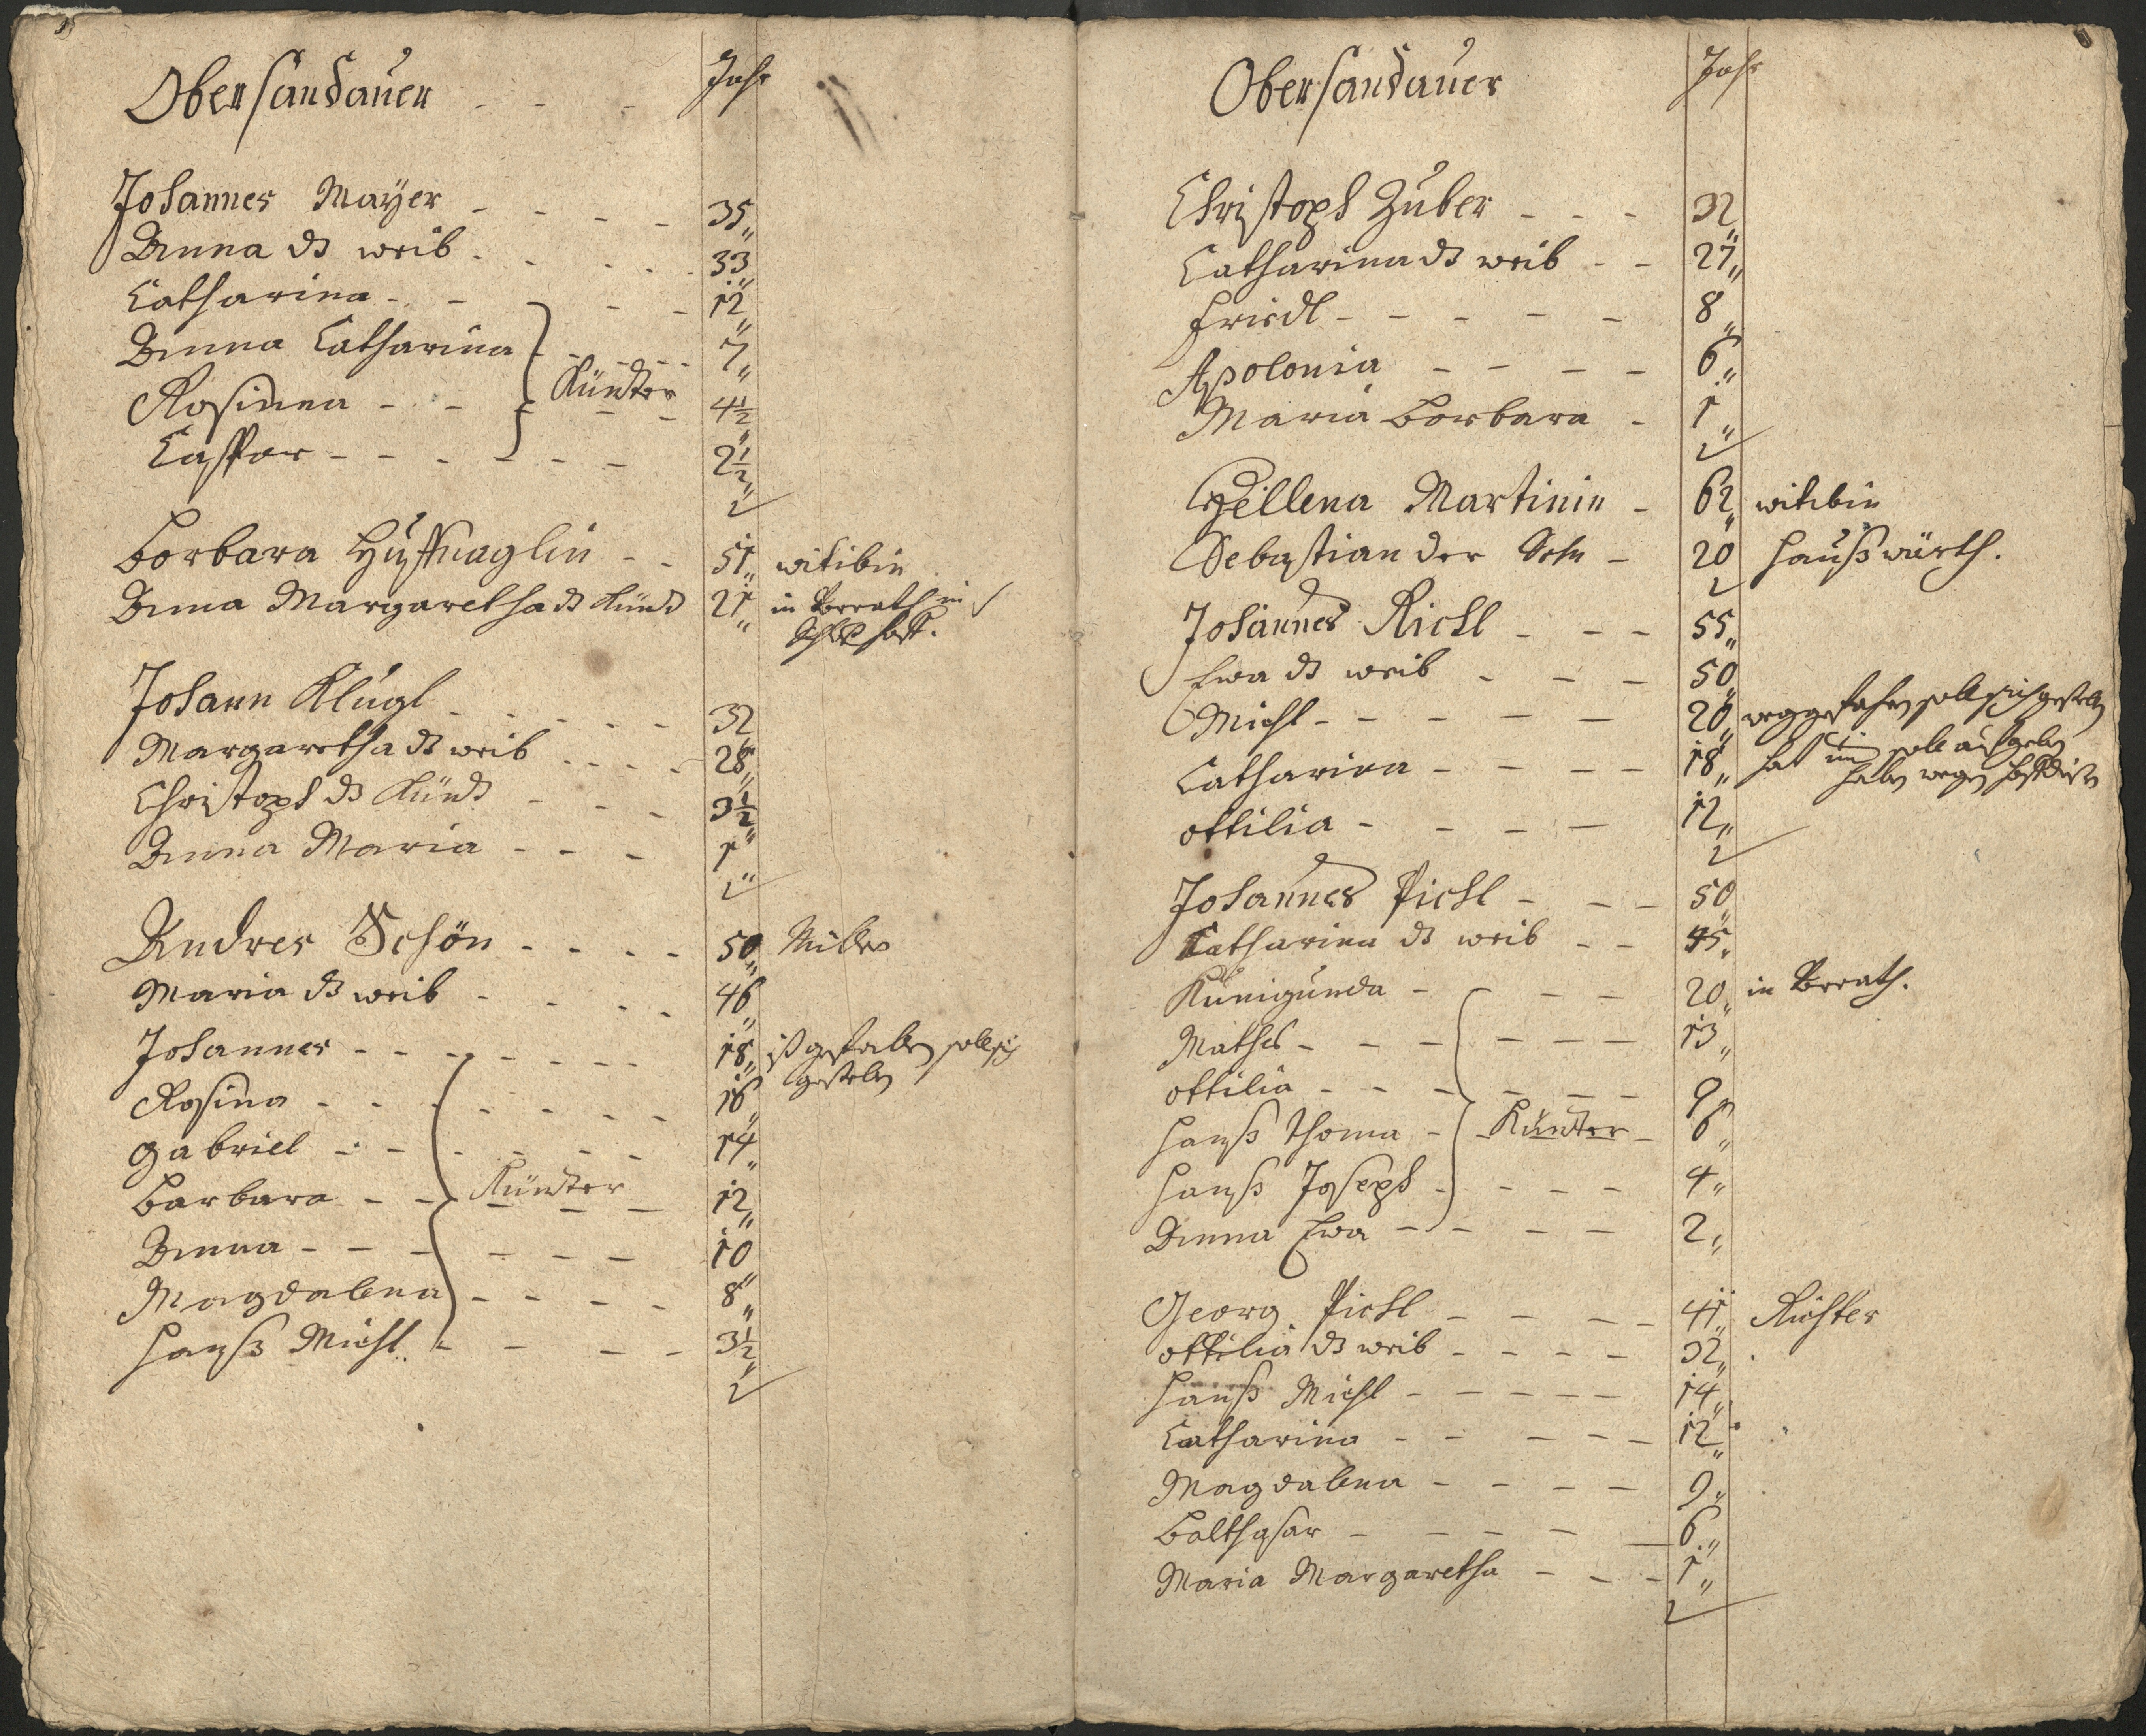 Obersandauer - - - Jahr
Johannes Maÿer - - - - - 35
Anna ds weib - - - - - 33
Catharina - - - - 12
Anna Catharina - - - - 7
Rosinna - - Künder - - 4½
Casspar - - - - - - 2½
Barbara Hueffnaglin - - 51 witibin
Anna Margaretha ds Kind 21 in Vorrath in
Johann Klügl - - - - - 32
Margaretha ds weib - - - - 28
Christoph ds Künd - - - 3½
Anna Maria - - - 1
Andres Schön - - - - 50 Müller
Maria ds weib - - - - 46
Johannes - - - - - - - 18 ist
Rosina - - - - - - - 16
Gabriel - - - - - - 14
Barbara - - Künder - - - 12
Anna - - - - - - - 10
Magdalena - - - - 8
Hanß Michl - - - - 3½
Obersandauer Jahr
Christoph Zuber - - - 32
Catharina ds weib - - 27
Fridl - - - - - - 8
Apolonia - - - - 6
Maria Barbara - 1
Hellena Martinin - 62 witibin
Sebastian der Sohn - 20 haußwürth.
Johannes Richl - - - 55
Ewa ds weib - - - 50
Michl - - - - - - 20
Catharina - - - - 18 hat
ottilia - - - - 12
Johannes Pichl - - - 50
Catharina ds weib - - 45
Kunigunda - - - - 20 in Vorrath.
Mathes - - - - - - - 13
ottilia - - - - - - - 9
Hanß Thoma - Künder - 6
Hanß Joseph - - - - - 4
Anna Ewa - - - - - 2
Georg Pichl - - - - 41 Richter
ottilia ds weib - - - - 32
Hanß Michl - - - - - 14
Catharina - - - - - 12
Magdalena - - - - 9
Balthasar - - - - - 6
Maria Margaretha - - - 1